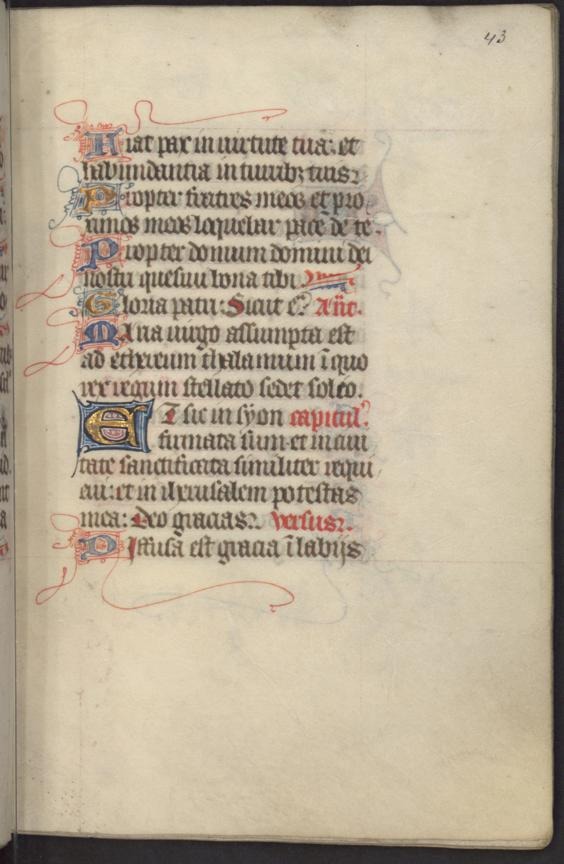 43
Fiat pax in uirtute tua: et
habundantia in turribꝫ tuis
Propter fratres meos et pro
ximos meos loquebar pacē de te
Propter domum domini dei
nostri quesiui bona tibi
Gloria patri: Sicut e. Añt.
Maria uirgo assumpta est
ad ethereum thalamum ī quo
rex regum stellato sedet solio.
Et sic in syon capitul'
firmata sum et in ciui
tate sanctificata similiter requi
eui: et in iherusalem potestas
mea: Deo gracias. versus.
Diffusa est gracia ī labijs